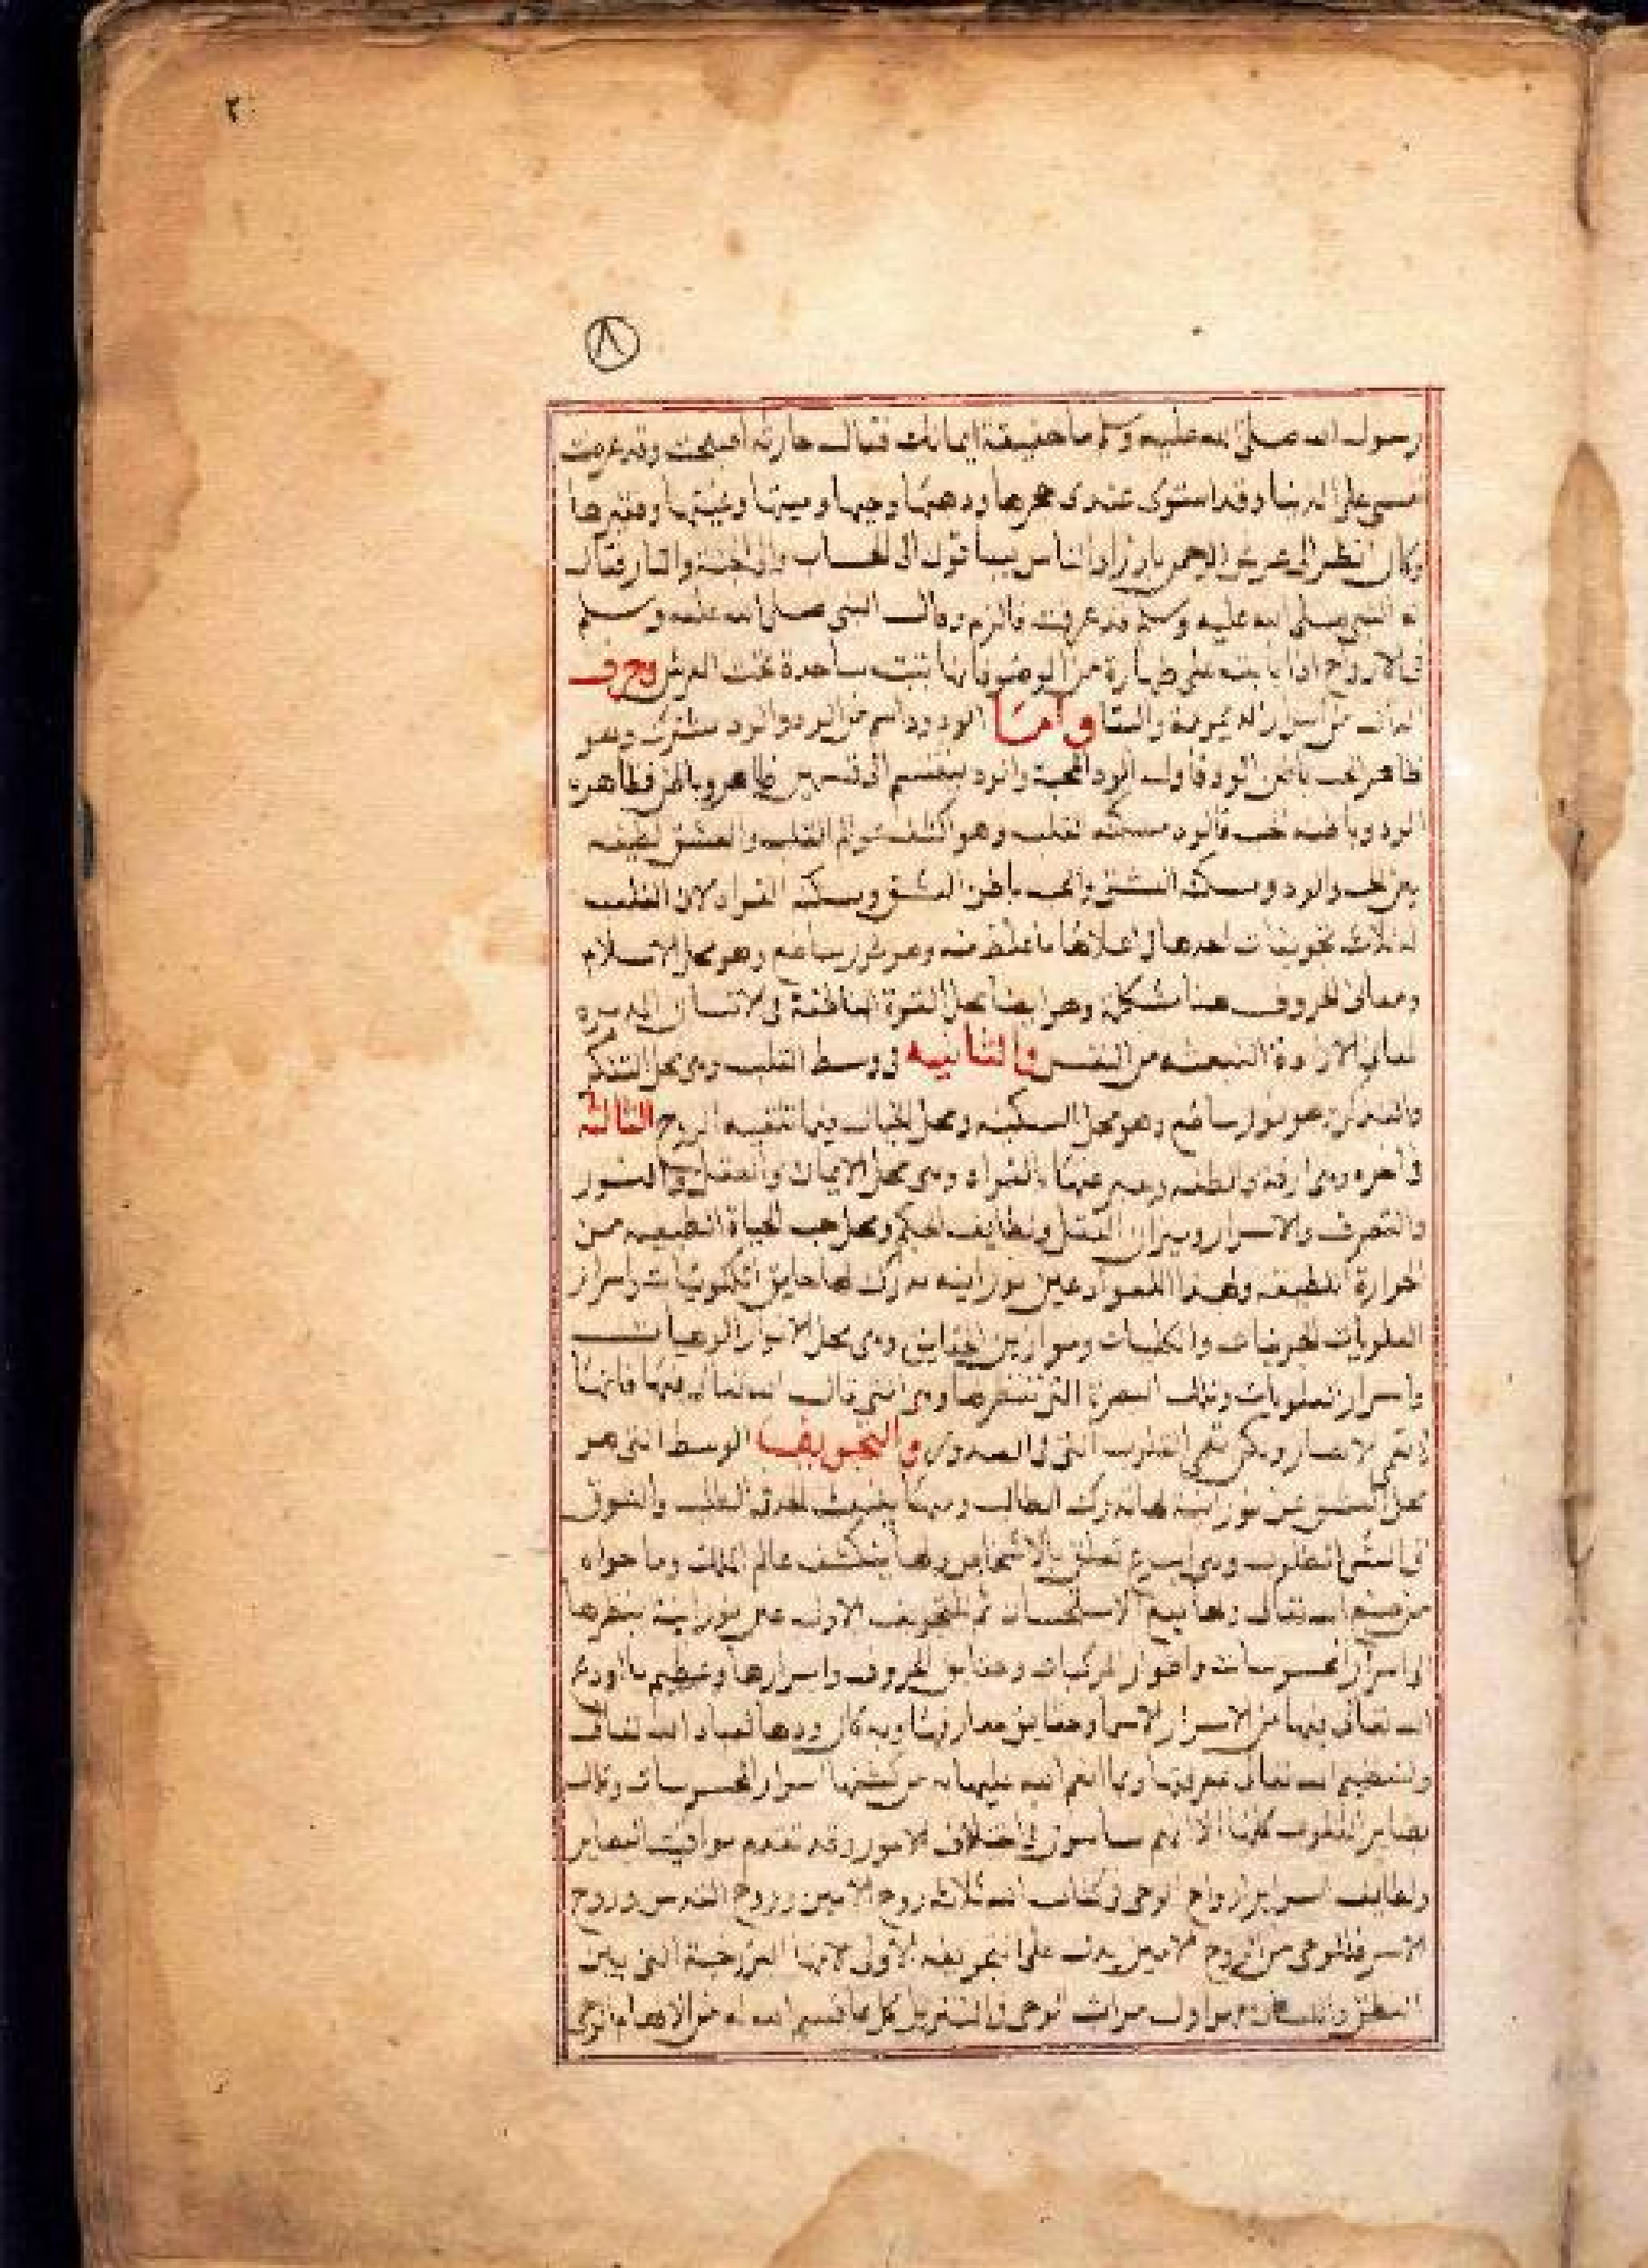 ٢
٨
رسول الله صلى الله عليه وسلم ما حقيقة ايمانك فقال حارثة اصبحت وقد عزفت
نفسي على الدنيا وقد استوى عندى حجرها وذهبها وحيها وميتها وغنيها وفقيرها
وكان انظر الى عرش الرحمن بارزا والناس يساقون الى الحساب والى الجنة والنار فقال
له النبي صلى الله عليه وسلم قد عرفت فالزم وقال النبي صلى الله عليه وسلم
فى الارواح اذا باتت على طهارة من الوضو فانها تبيت ساجدة تحت العرش وحرف
الدال من اسرار الديمومة والبقا واما الودود اسم من الود والود مشترك وهو
ظاهر الحب باطن الود فاول الود المحبة والود ينقسم الى قسمين ظاهر وباطن فظاهره
الود وباطنه الحب فالود مسكنه القلب وهو والعشق لطيفه
بين الحب والود ومسكنه والحب باطن العشق ومسكنه الفواد لان القلب
له ثلاث تجويفات احدها فى اعلاها ما غلظ منه وهو نور ساطع وهو محل الاسلام
ومعانى الحروف هنا مشكلة وهو ايضا محل القوة الناطقة فى الانسان المدبره
لمعانى الارادة المنبعثه من النفس والثانيه فى وسط القلب وهى محل التفكر
والتذكر وهو نور ساطع وهو محل السكينه ومحل الخيال فيما تلقيه الروح الثالثه
فى اخره وهى ارقه والطفه ويعبر عنها بالفواد وهى محل الايمان والعقل والنور
والتصرف والاسرار وميزان العقل ولطايف الحكم ومحل حب الحياة الطبيعيه من
الحرارة اللطيفه ولهذا الفواد عين نورانيه يدرك بها حقايق الملكوتيات واسرار
العلويات الجزئيات والكليات وموازين الحقايق وهى محل الانوار الوهبيات
واسرار العلويات وتلك البصيرة التى تنظرها وهى التى قال الله تعالى فيها فانها
لا تعمى الابصار ولكن تعمى القلوب التى فى الصدور والتجويف الوسط الذى هو
محل العشق عين نورانية بها تدرك الطالب ومنها ينبعث لصدق الطلب والشوق
الى الشى المطلوب وهى اسرع تعلق بالاشخاص وبها ينكشف عالم الملك وما حواه
من صنع الله تعالى وبها يقع الاستحسان ثم التجويف الاول عين نورانية ينظر بها
الى اسرار المحسوسات واطوار المركبات وحقايق الحروف واسرارها وعظيم ما اودع
الله تعالى فيها من الاسرار الاسما وحقايق معارفها وبه كان ودها لعباد الله تعالى
ولتعظيم الله تعالى بما انعم الله عليها به من كشفها اسرار المحسوسات وتلك
بصاير القلوب كلها الا فى اختلاف الامور وقد تقدم مواقيت البصاير
ولطايف السراير ارواح الوحى فى كتاب الله ثلاثة روح الامين وروح القدس وروح
الامر فالوحى من الروح الامين يدل على التجويف الاولى لانها البرزخية التى بين
النطق واللسان من اول مراتب الوحى فى التنزيل كل ما قسم الله له من الالهام الوحى